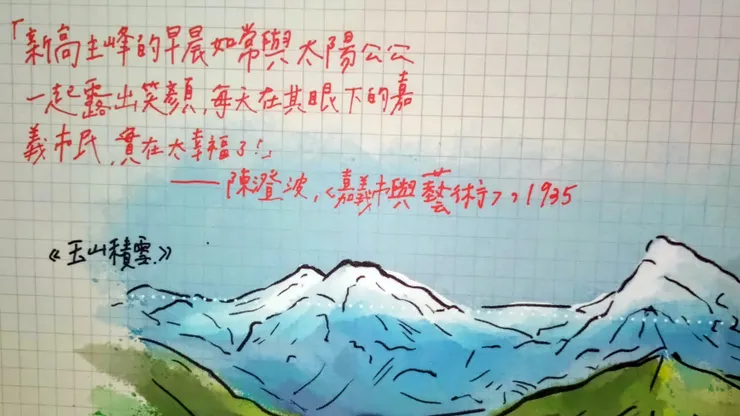 「新高主峰的早晨如常與太陽公公
一起露出笑顏,每天在其眼下的嘉
義市民,實在太幸福了!」
——陳澄波,《嘉義市與藝術》,1935
《玉山積雪》